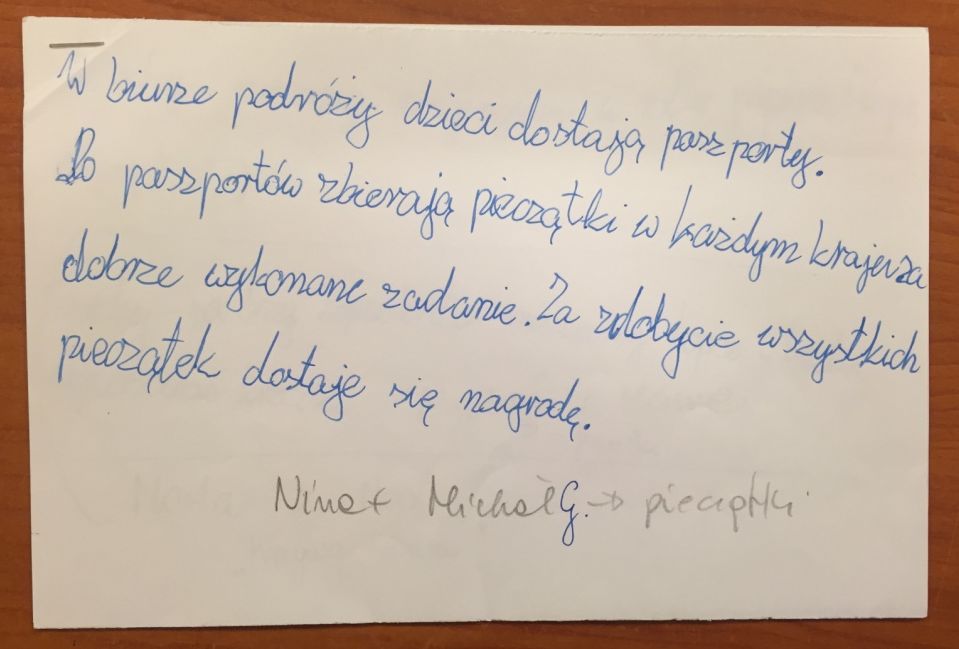 W biurze podróży dzieci dostają paszporty.
Do paszportów zbierają pieczątki w każdym kraju za
dobrze wykonane zadanie. Za zdobycie wszystkich
pieczątek dostaje się nagrodę.
Nina + Michał G. → pieczątki